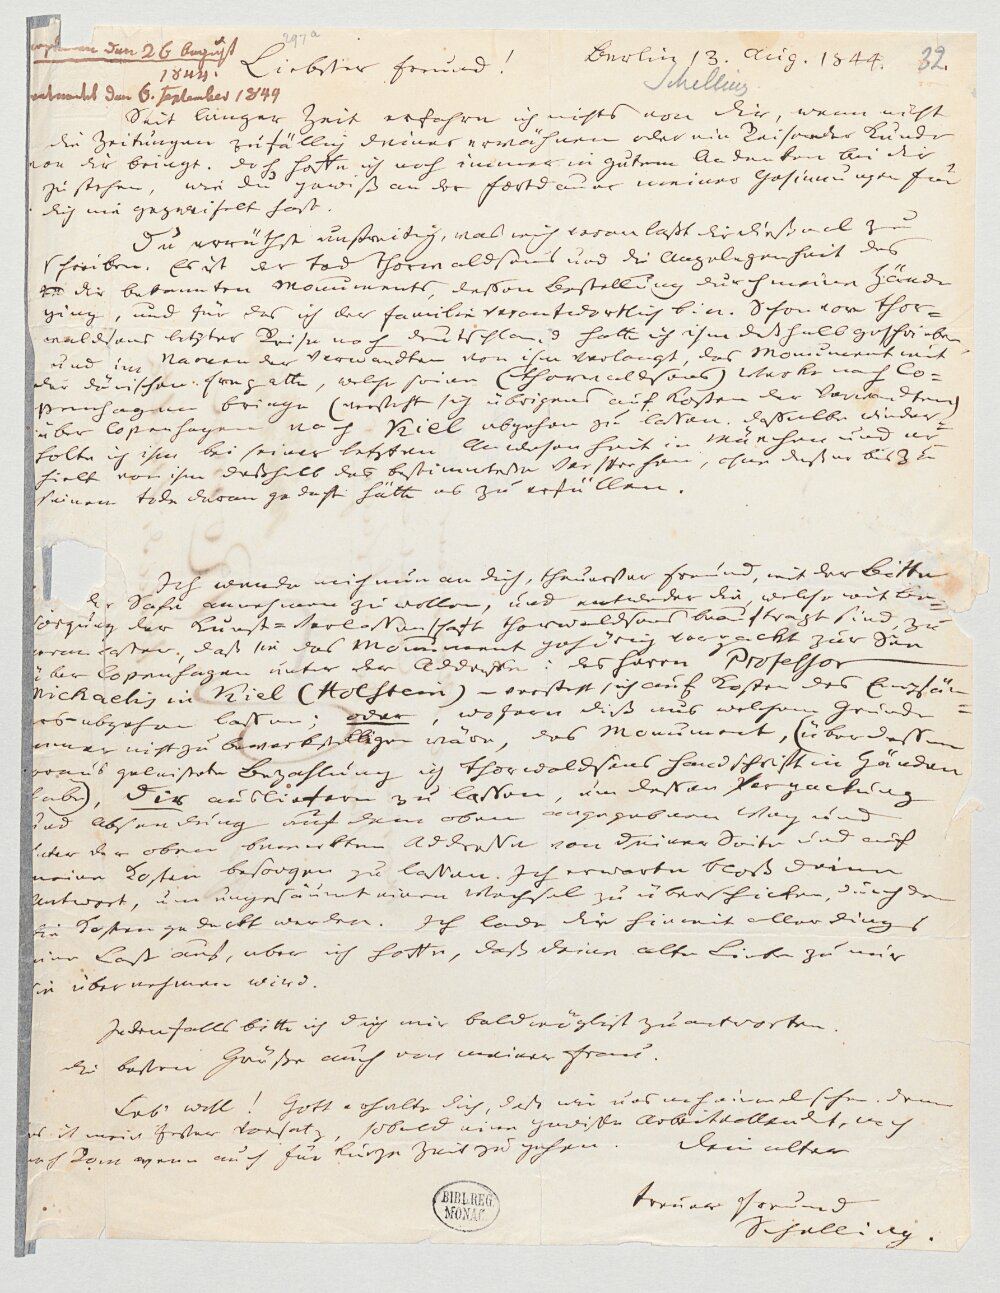 empfangen den 26 August
1844.
beantwortet den 6. September 1844
297a
Liebster Freund!
Berlin 13. Aug. 1844.
32.
Schelling
Seit langer Zeit erfahre ich nichts von Dir, wenn nicht
die Zeitungen zufällig Deiner erwähnen oder ein Reisender Kunde
von Dir bringt, doch hoffe ich noch immer in gutem Andenken bei Dir
zu stehen, wie Du gewiß an der Fortdauer meiner Gesinnungen für
Dich nie gezweifelt hast.
Du erräthst unstreitig, was mich veranlaßt Dir dießmal zu
schreiben. Es ist der Tod Thorwaldsens und die Angelegenheit des
Dir bekannten Monuments, dessen Bestellung durch meine Hände
ging, und für das ich der Familie verantwortlich bin. Schon vor Thor=
waldsens letzter Reise nach Deutschland hatte ich ihm deßhalb geschrieben,
und im Namen der Verwandten von ihm verlangt, das Monument mit
der dänischen Fregatte, welche seine (Thorwaldsens) Werke nach Co=
penhagen bringe (versteht sich übrigens auf Kosten der Verwandten)
über Copenhagen nach Kiel abgehen zu lassen. Dasselbe wieder=
holte ich ihm bei seiner letzten Anwesenheit in München und er=
hielt von ihm deßhalb das bestimmteste Versprechen, ohne daß er bis zu
seinem Tode daran gedacht hätte es zu erfüllen.
Ich wende mich nun an Dich, theuerster Freund, mit der Bitte
der Sache annehmen zu wollen, und entweder die, welche mit Be=
sorgung der Kunst=Verlassenschaft Thorwaldsens beauftragt sind, zu
veranlassen, daß sie das Monument gehörig verpackt zur See
über Copenhagen unter der Addresse: des Herrn Professor
Michaelis in Kiel (Holstein) – versteht sich auf Kosten des Empfän=
gers abgehen lassen; oder, wofern dieß aus welchem Grunde
immer nicht zu bewerkstelligen wäre, das Monument, (über dessen
voraus geleistete Bezahlung ich Thorwaldsens Handschrift in Händen
habe), Dir ausliefern zu lassen, um dessen Verpackung
und Absendung auf dem oben angegebenen Weg und
unter der oben bemerkten Addresse von Deiner Seite und auf
meine Kosten besorgen zu lassen. Ich erwarte bloß Deine
Antwort, um ungesäumt einen Wechsel zu überschicken, durch den
die Kosten gedeckt werden. Ich lade Dir hiemit allerdings
eine Last auf, aber ich hoffe, daß Deine alte Liebe zu mir
sie übernehmen wird.
Jedenfalls bitte ich Dich mir baldmöglichst zu antworten.
Die besten Grüße auch von meiner Frau.
Leb' wohl! Gott erhalte Dich, daß wir uns noch einmal sehen. Denn
es ist mein fester Vorsatz, sobald eine gewisse Arbeit vollendet, noch
nach Rom wenn auch für kurze Zeit zu gehen. Dein alter
treuer Freund
Schelling.
BIBL. REG.
MONAC.